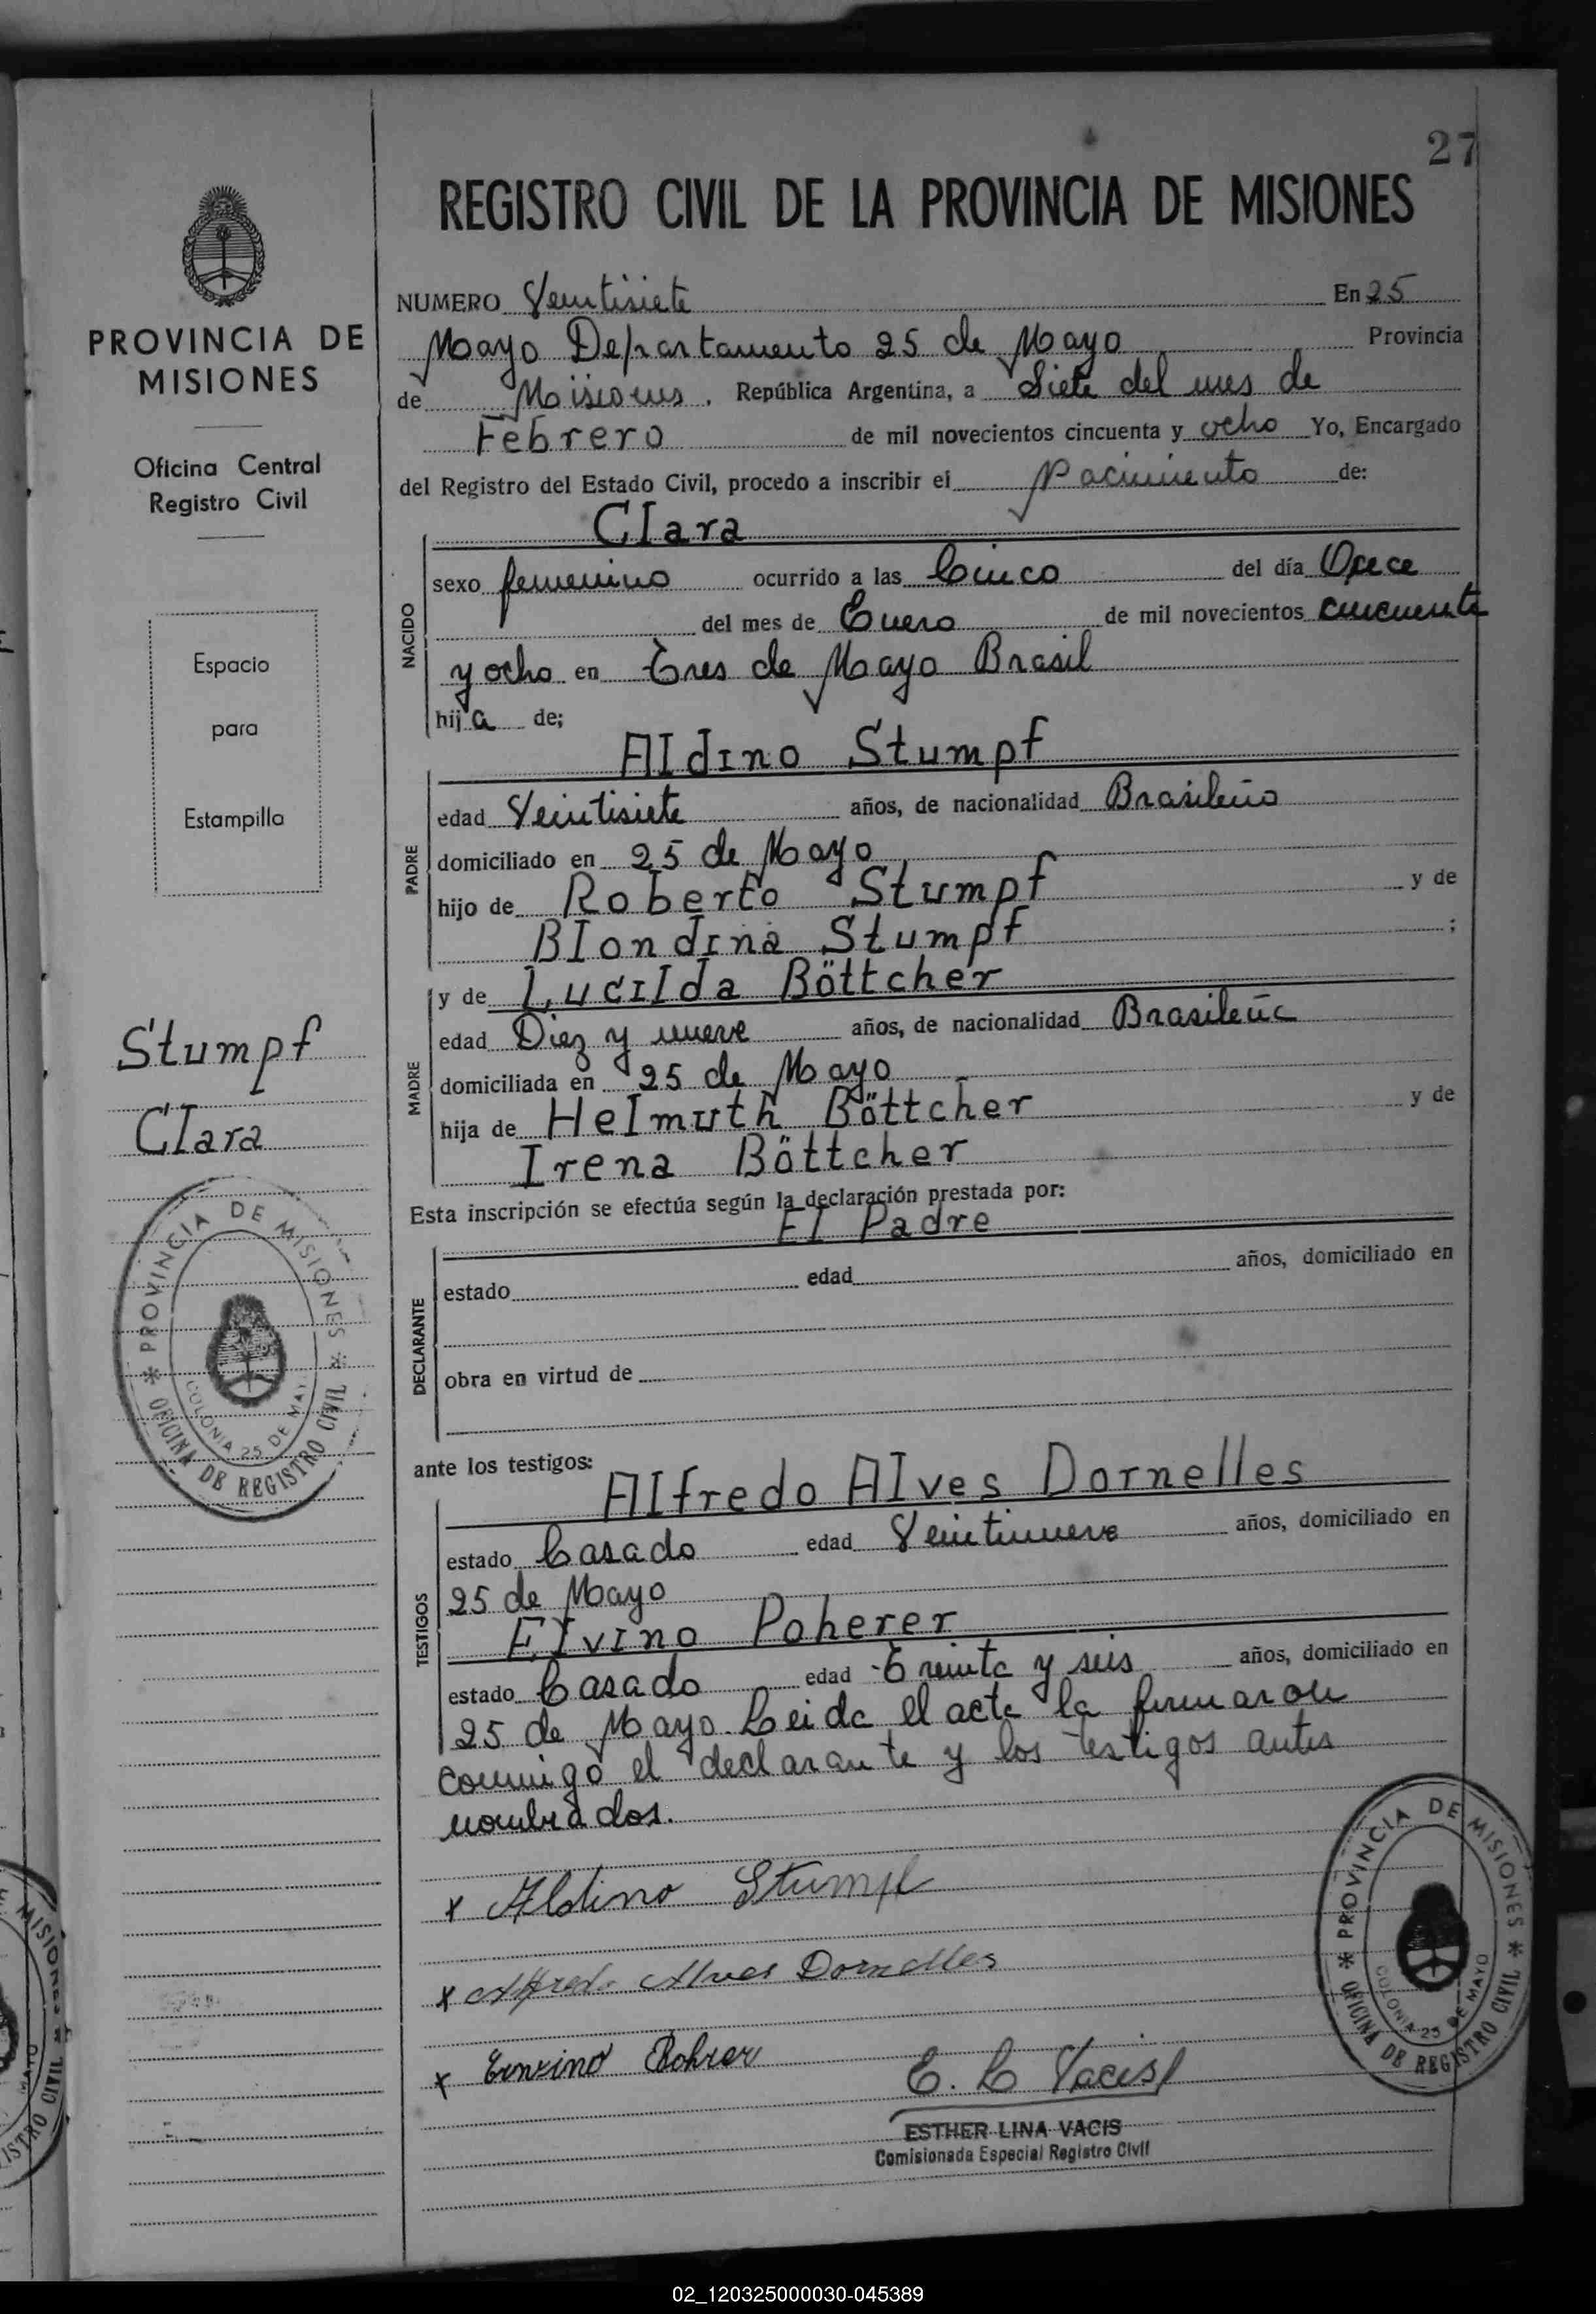 27
REGISTRO CIVIL DE LA PROVINCIA DE MISIONES
PROVINCIA DE
MISIONES
Oficina Central
Registro Civil
Espacio
para
Estampilla
Stumpf
Clara
PROVINCIA DE MISIONES
COLONIA 25 DE MAY
OFICINA DE REGISTRO CIVIL
NUMERO Veintisiete En 25
Mayo Departamento 25 de Mayo Provincia
de Misiones, República Argentina, a Siete del mes de
Febrero de mil novecientos cincuenta y ocho Yo, Encargado
del Registro del Estado Civil, procedo a inscribir el Nacimiento de:
NACIDO
Clara
sexo femenino ocurrido a las Cinco del día
del mes de Enero de mil novecientos cincuenta
y ocho en Tres de Mayo Brasil
hija de;
PADRE
Aldino Stumpf
edad Veintisiete años, de nacionalidad Brasileño
domiciliado en 25 de Mayo
hijo de Roberto Stumpf y de
Blondina Stumpf ;
MADRE
y de Lucilda Böttcher
edad Diez y nueve años, de nacionalidad Brasileña
domiciliada en 25 de Mayo
hija de Helmuth Böttcher y de
Irena Böttcher
Esta inscripción se efectúa según la declaración prestada por:
El Padre
DECLARANTE
estado edad años, domiciliado en
obra en virtud de
ante los testigos:
TESTIGOS
Alfredo Alves Dornelles
estado Casado edad Veintinueve años, domiciliado en
25 de Mayo
Elvino Poherer
estado Casado edad Treinta y seis años, domiciliado en
25 de Mayo. Leida el acta la firmaron
conmigo el declarante y los testigos antes
nombrados.
x Aldino Stumpf
x Alfredo Alves Dornelles
x Ervino Rohrer
E. L Vacis
ESTHER LINA VACIS
Comisionada Especial Registro Civil
PROVINCIA DE MISIONES
COLONIA 25 DE MAYO
OFICINA DE REGISTRO CIVIL
02_120325000030-045389